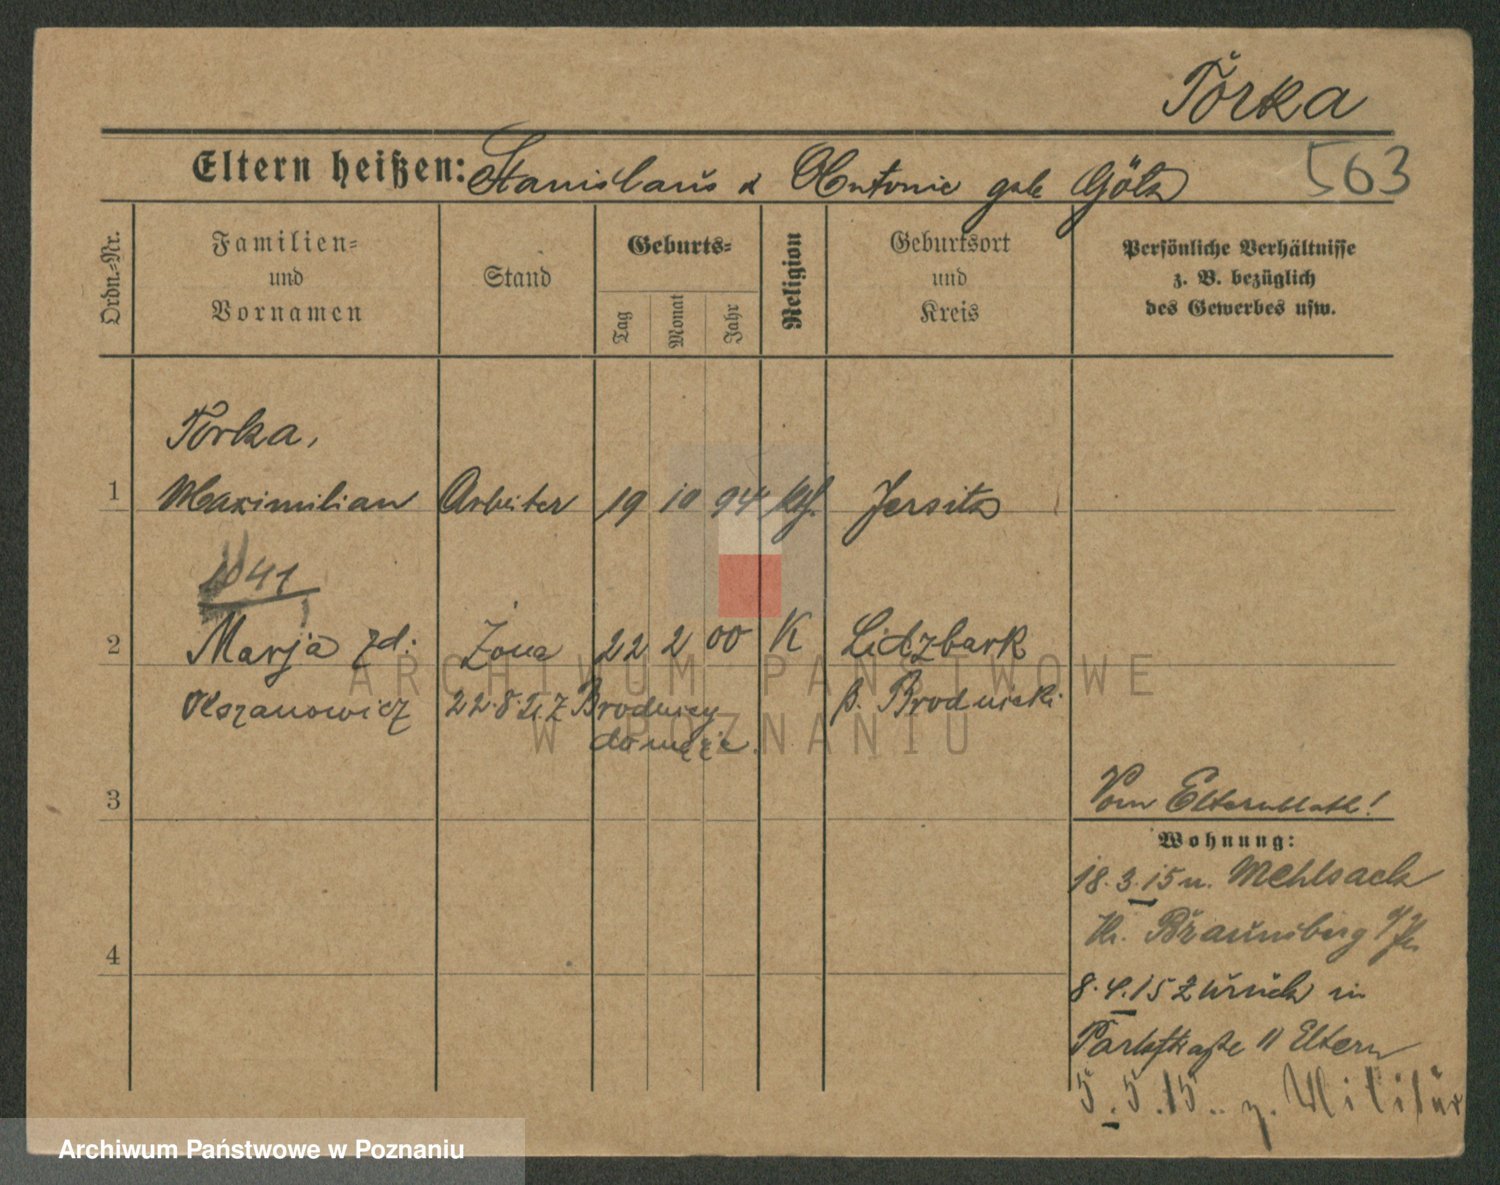 Torka
563
Eltern heißen: Stanislaus & Antonie geb Gölz
Ordn.-Nr.
Familien-
und
Vornamen
Stand
Geburts-
Tag
Monat
Jahr
Religion
Geburtsort
und
Kreis
Persönliche Verhältnisse
z. B. bezüglich
des Gewerbes usw.
Torka,
1 Maximilian Arbeiter 19 10 94 kth. Jersitz
1941
2 Marja zd: Żona 22 2 00 K Lidzbark
Olszanowicz 22.8.21. z Brodnicy p. Brodnicki
do męża.
3
Vom Elternblatt!
Wohnung:
18.3.15 n. Mehlsack
Kr. Braunsberg
4
8.4.15 zurück in
Parkstraße 11 Eltern
5.5.15.. z. Militär
ARCHIWUM PAŃSTWOWE
W POZNANIU
Archiwum Państwowe w Poznaniu